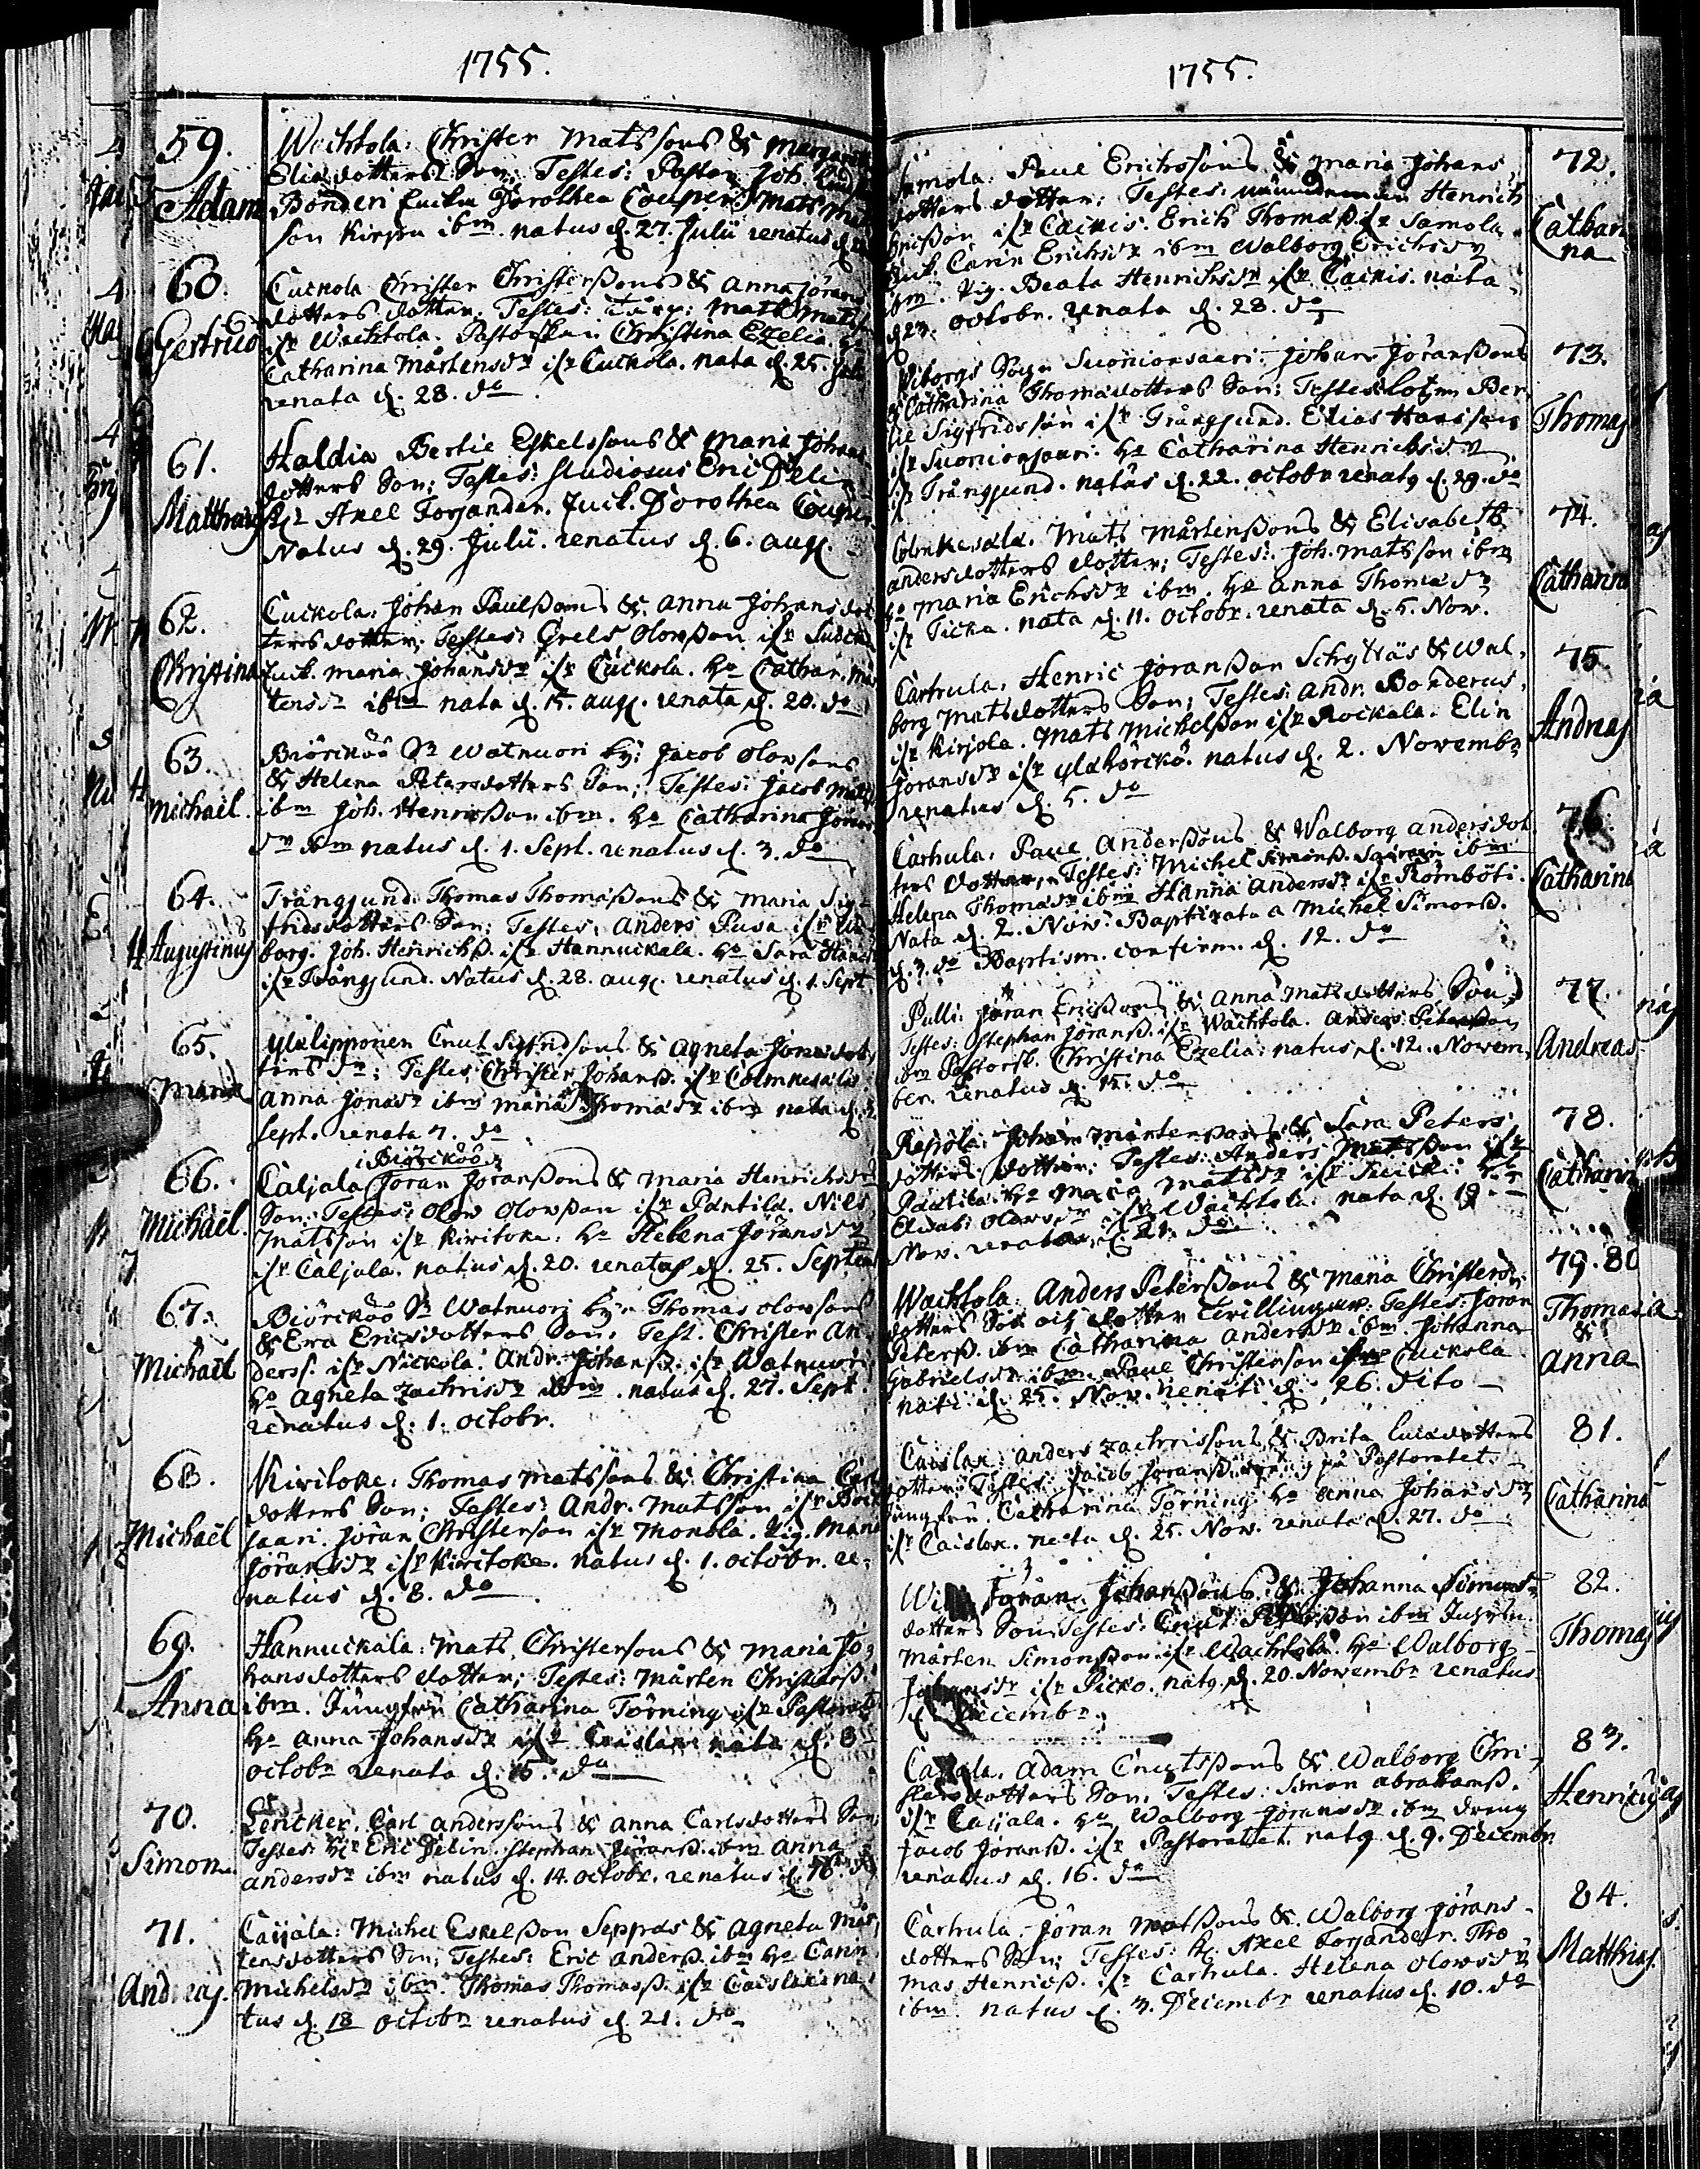 1755.
59.
Adam
Wachtola: Christer Matssons & Margareta
Eliædotters Son; Testes: Pastor Joh.
Bonderi Encka Dorothea Couper. Mats
son Kirpu ibm natus d. 27. Julii renatus d.
60.
Gertrud
Cuckola Christer Christerssons & Anna Jörans
dotters dotter; Testes: Mats Mats
ifr Wachtola. Pastorskan Christina Ezelia. ho
Catharina Mårtensdr ifr Cuckola. nata d. 25. Julii
renata d. 28. do
61.
Matthias
Haldia Bertie Eskelssons & Maria Johans
dotters Son; Testes: Studiosus Eric Delin
Axel Forsander. Juck. Dorothea Couper.
Natus d. 29. Julii. renatus d. 6. aug.
62.
Christina
Cuckola: Johan Paulssons & Anna Johansdot
ters dotter; Testes: Grels Olowsson ifr
Juck. Maria Johansdr ifr Cuckola. ho Cathar. Mår
tensdr ibm nata d. 15. aug. renata d. 20. do
63.
Michaël.
Biörcköö Sn Watnuori by: Jacob Olowsons
& Helena Petersdotters Son; Testes: Jacob Mats
ibm Joh. Henricsson ibm. ho Catharina Jöns
dr ibm natus d. 1. Sept. renatus d. 3. do
64.
Augustinus
Trångsund: Thomas Thomassons & Maria Sig-
fridsdotters Son; Testes: Anders Pusa ifr Wi
borg. Joh. Henrichss. ifr Hannuckala. ho Sara
ifr Trångsund. Natus d. 28. aug. renatus d. 1. Sept
65.
Maria
Yläsipponen Cnut Sigfridsons & Agneta Jonædot
ters dr; Testes: Christer Johanss. ifr Colmkesala
Anna Jonædr ibm Maria Thomædr ibm nata d. 3.
Sept. renata 7. do
66.
Michaël.
i Biörcköö
Caljala Jöran Joranssons & Maria Henrichsdr
Son; Testes: Olow Olowsson ifr Pentila. Nils
Matsson ifr Kiritoke. ho Helena Jöransdr
ifr Caljala. natus d. 20. renatus d. 25. Septem
67.
Michaël
Biörcköö Sn Watnuori by. Thomas Olowsons
& Eva Ericsdotters Son. Test. Christer An-
derss. ifr Nickola. Andr. Johanss. ifr Watnuori
ho Agneta Zachrisdr ibm. natus d. 27. Sept.
renatus d. 1. octobr.
68.
Michaël
Kiritoke: Thomas Matssons & Christina Carls
dotters Son; Testes: Andr. Matsson ifr
saari. Jöran Christerson ifr Monola. Pig. Maria
Jöransdr ifr Kiritoke. natus d. 1. octobr. re-
natus d. 8. do
69.
Anna
Hannuckala: Mats Christersons & Maria Jo-
hansdotters dotter; Testes: Mårten Christerss.
ibm. Jungfru Catharina Törning ifr Pastorat
ho Anna Johansdr ifr Caislax. nata d. 8
octobr renata d. 15. do
70.
Simon
Lencker. Carl Anderssons & Anna Carlsdotters Son
Testes: Hr Eric Delin. Stephan Jöranss. ibm Anna
Andersdr ibm natus d. 14. octobr. renatus d. 16. do
71.
Andreas.
Caijala: Michel Eskelsson Seppräs & Agneta Mår
tensdotters Son; Testes: Eric Anderss. ibm ho Carin
Michelsdr ibm. Thomas Thomass. ifr Caislax. na
tus d. 18 octobr renatus d. 21. do
1755.
72.
Cathari
na
Samola: Paul Erichssons & Maria Johans
dotters dotter; Testes: Henrich
Ericsson ifr Cackis. Erich Thomass. ifr Samola.
Juck. Carin Erichsdr ibm Walborg Erichsdr
ibm. Pig. Beata Henrichsdr ifr Cackis. nata
d. 23. octobr. renata d. 28. do
73.
Thomas
Wiborgs Sogn Suonionsaari. Johan Jöranssons
& Catharina Thomædotters Son; Testes: Ber-
til Sigfridsson ifr Trångsund. Elias Hansson
ifr Suonionsaari. ho Catharina Henrichsdr
ifr Trångsund. natus d. 22. octobr renatg d. 29. do
74.
Catharina
Colmkesala. Mats Mårtenssons & Elisabeth
Andersdotters dotter; Testes: Joh. Matsson ibm
ho Maria Erichsdr ibm. ho Anna Thomædr
ifr Ticka. nata d. 11. octobr. renata d. 5. Nov.
75.
Andreas
Carhula. Henric Joransson Schyttäs & Wal-
borg Matsdotters Son; Testes: Andr. Bonderus
ifr Kirjola. Mats Michelsson ifr Rockala. Elin
Joransdr ifr Ylähörckö. natus d. 2. Novembr
renatus d. 5. do
76.
Catharina
Carhula. Paul Anderssons & Walborg Andersdot
ters dotter; Testes: Michel Simonss. ibm
Helena Thomædr ibm Hanna Andersdr ifr Römböti.
Nata d. 2. Nov. Baptizata a Michel Simonss.
d. 3. do Baptism. confirm. d. 12. do
77.
Andreas
Pulli: Jöran Ericssons & Anna Matsdotters Son;
Testes: Stephan Joranss. ifr Wachtola. Anders Petersson
ibm Pastorsk. Christina Ezelia. natus d. 12. Novem-
ber. renatus d. 15. do
78.
Catharina
Repola: Johan Mårtenssons & Sara Peters
dotters dotter: Testes: Anders Matsson ifr
Päntilä. ho Maria Matsdr ifr
Elisab: Olowsdr ifr Wachtola. nata d. 19.
Nov. renata d. 21. do
79. 80
Thomas
&
Anna
Wachtola: Anders Peterssons & Maria Christersd
dotters Son och dotter Twillingar. Testes: Joran
Peterss. ibm Catharina Andersdr ibm. Johanna
Gabrielsdr ibm. Paul Christerson ifr Cuckola
nati d. 25. Nov. renati d. 26. dito
81.
Catharina
Caislax: Anders Zachrissons & Brita Lucædotters
dotter; Testes: Jacob Joranss. dreng på Pastoratet.
Jungfru. Catharina Törning. ho Anna Johansdr
ifr Caislax. nata d. 25. Nov. renata d. 27. do
82.
Thomas
Jöran Johanssons & Johanna Simons-
dotters Son; Testes: Cnut ibm
Mårten Simonsson ifr Wachtola. ho Walborg
Johansdr ifr Picko. natg. d. 20. Novembr renatus
d. Decembr.
83.
Henricus
Caijala. Adam Cnutssons & Walborg Chri-
stersdotters Son; Testes: Simon Abrahamss.
ifr Caijala. ho Walborg Joransdr ibm dreng
Jacob Joranss. ifr Pastoratet. natg d. 9. Decembr.
renatus d. 16. do
84.
Matthias.
Carhula. Jöran Matssons & Walborg Jörans-
dotters Son; Testes: Hr Axel Forsander. Tho-
mas Henricss. ifr Carhula. Helena Olowsdr
ibm natus d. 3. Decembr renatus d. 10. do